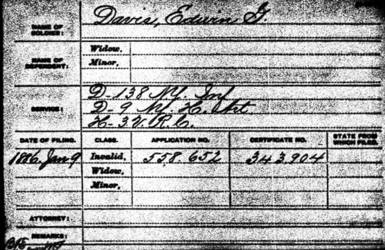 NAME OF SOLDIER: Davis, Edwin G.
NAME OF DEPENDENT: Widow,
Minor,
SERVICE: D. 138 N.Y. Inf
D. 9 N.Y. H. Art
H. 3 V.R.C.
DATE OF FILING. CLASS. APPLICATION NO. CERTIFICATE NO. STATE FROM WHICH FILED.
1886 Jan 9 Invalid, 558.652 343.904
Widow,
Minor,
ATTORNEY:
REMARKS: